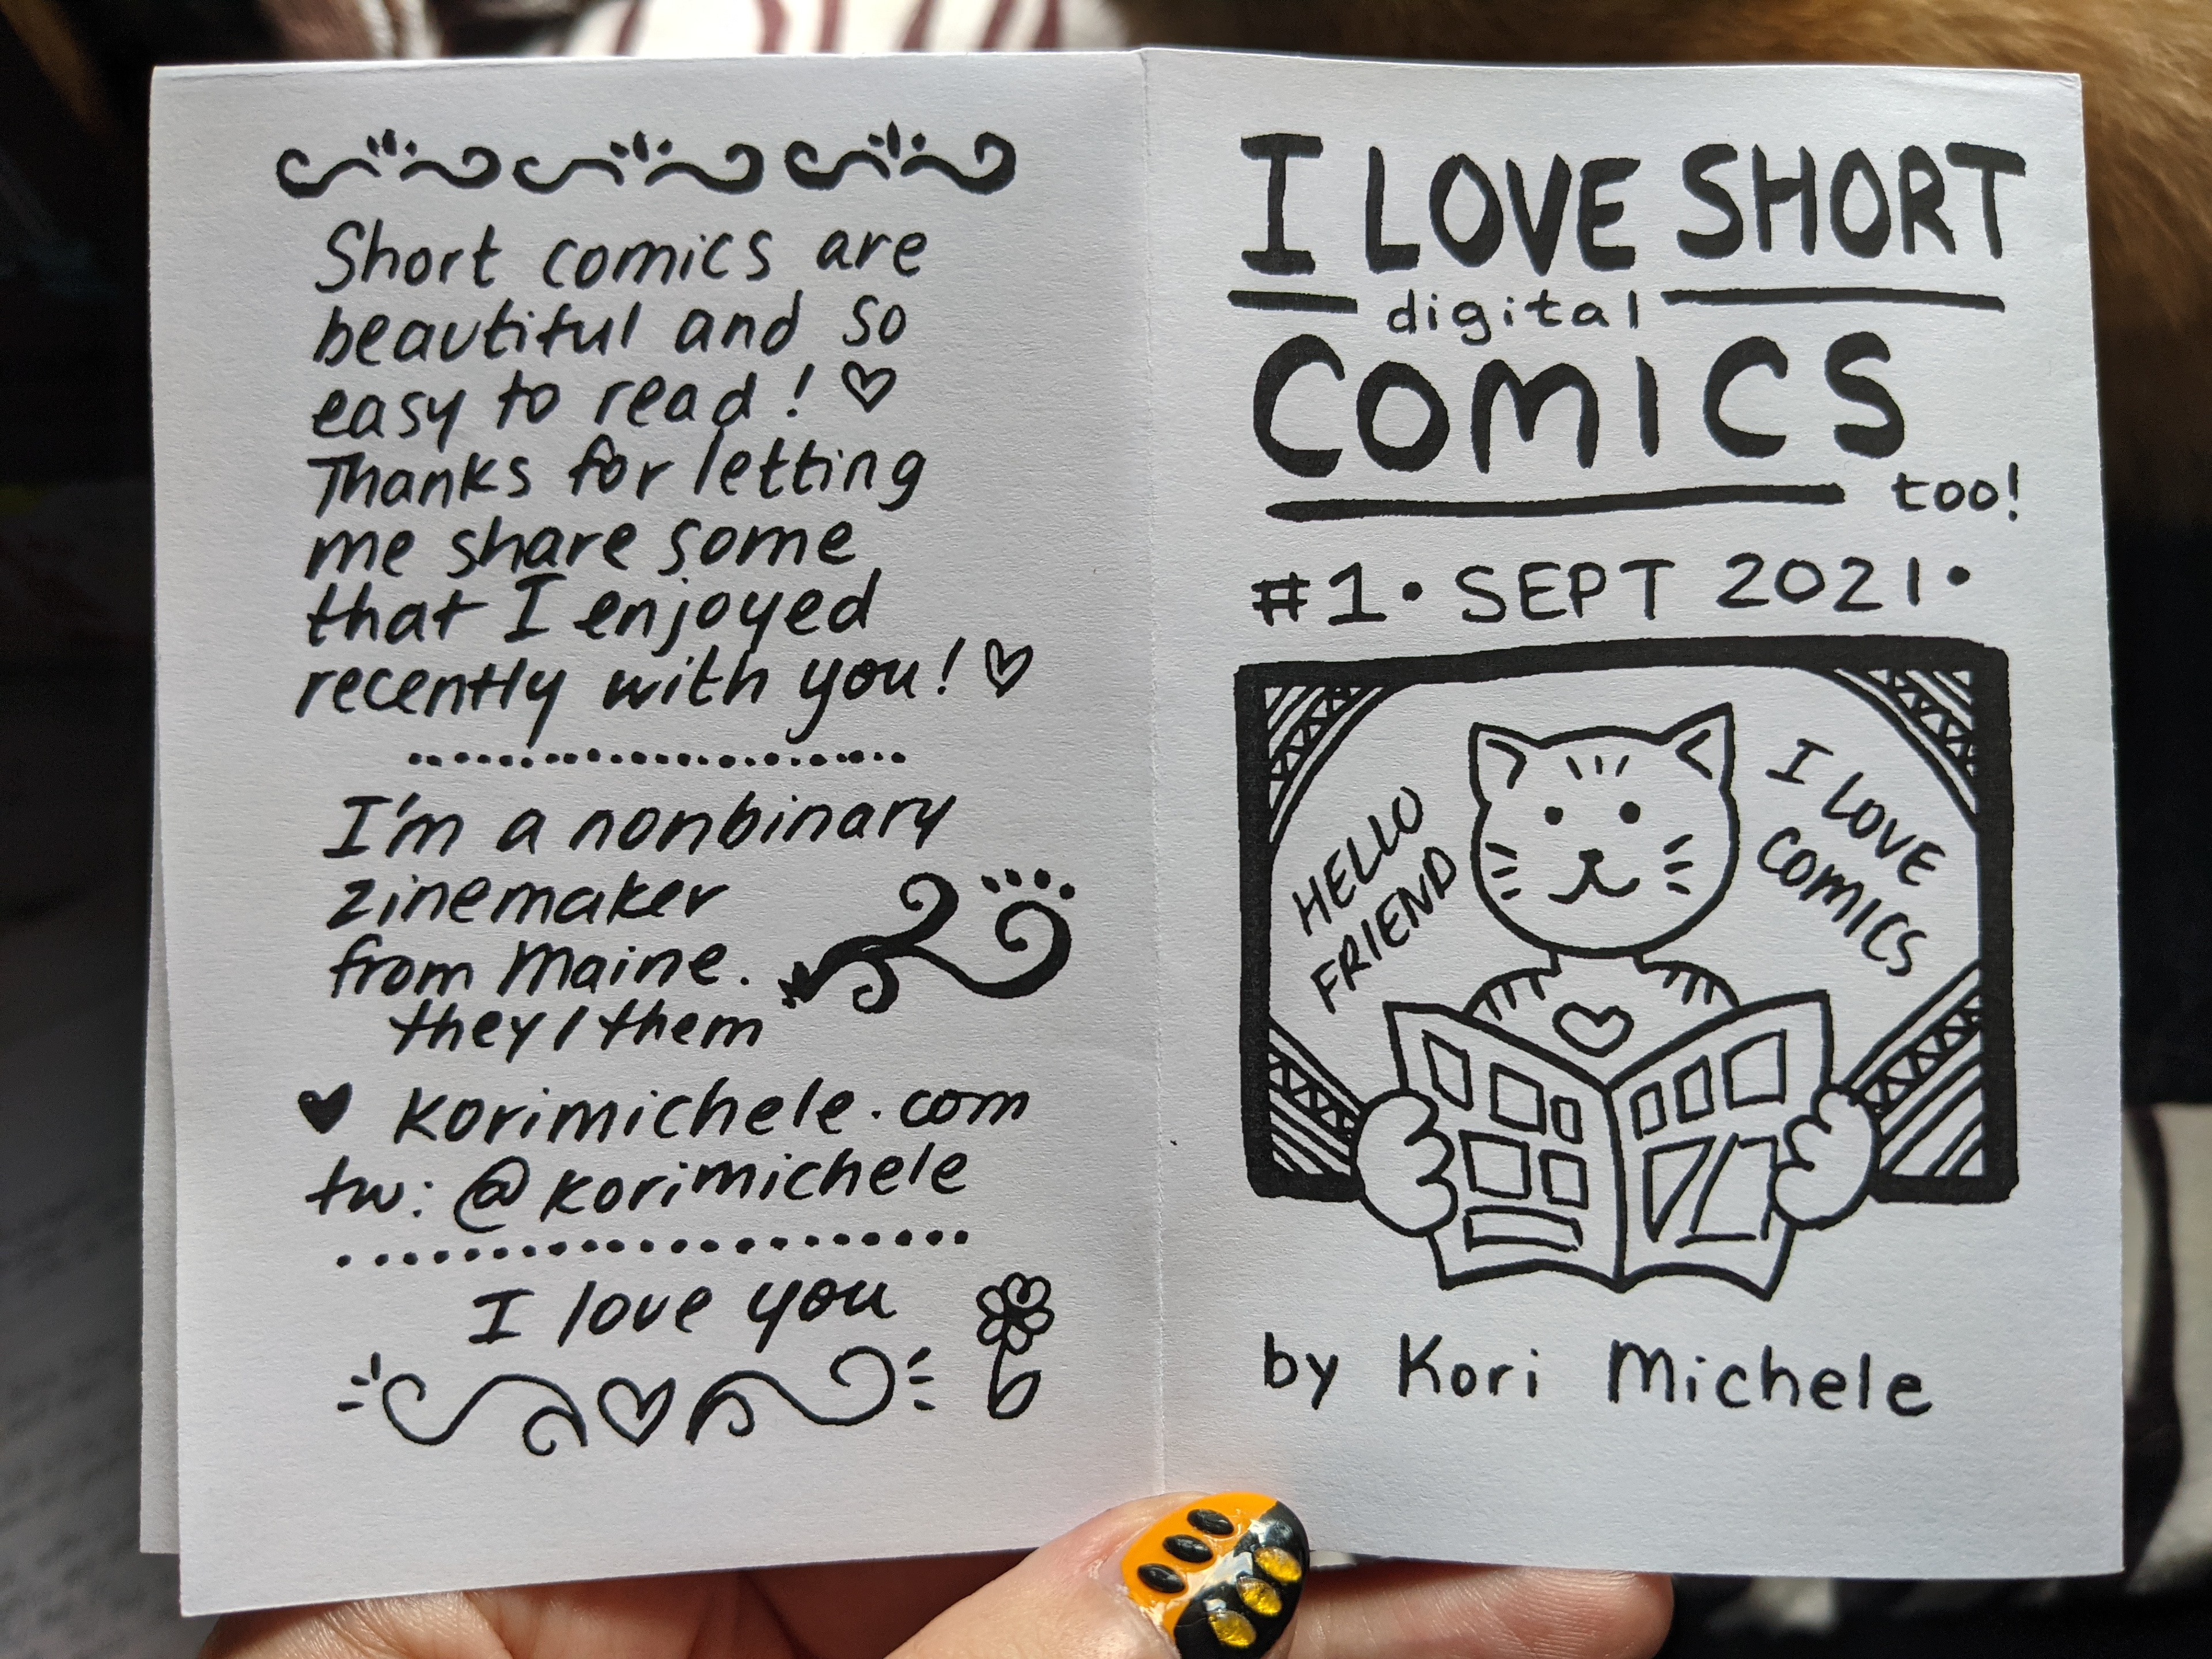 Short comics are
beautiful and so
easy to read! ♡
Thanks for letting
me share some
that I enjoyed
recently with you! ♡
I'm a nonbinary
zinemaker
from Maine.
they/them
♥ korimichele.com
tw: @korimichele
I love you
I LOVE SHORT
digital
COMICS
too!
#1 • SEPT 2021 •
HELLO
FRIEND
I LOVE
COMICS
by Kori Michele